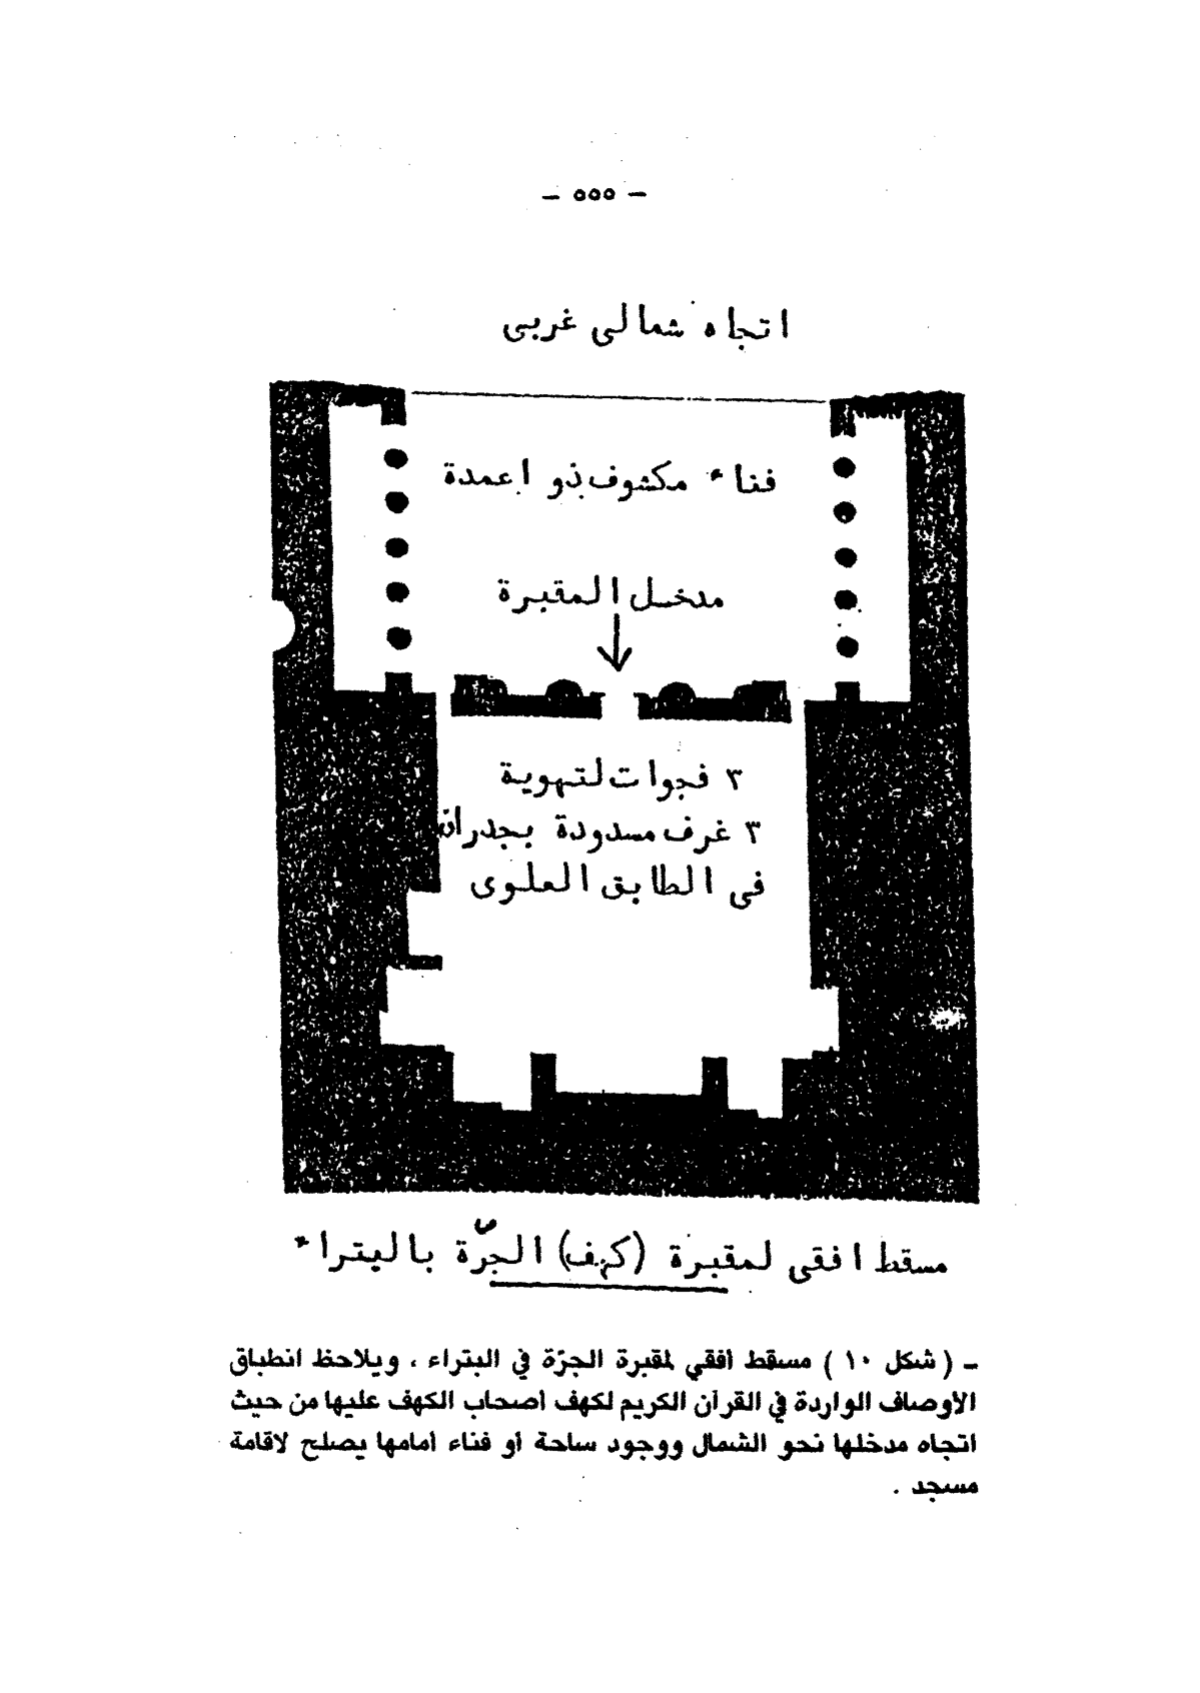 – ٥٥٥ –
اتجاه شمالي غربي
فناء مكشوف ذو اعمدة
مدخل المقبرة
٣ فجوات لتهوية
٣ غرف مسدودة بجدران
في الطابق العلوي
مسقط افقي لمقبرة (كهف) الجرّة بالبتراء
– ( شكل ١٠ ) مسقط أفقي لمقبرة الجرّة في البتراء ، ويلاحظ انطباق
الأوصاف الواردة في القرآن الكريم لكهف أصحاب الكهف عليها من حيث
اتجاه مدخلها نحو الشمال ووجود ساحة أو فناء أمامها يصلح لاقامة
مسجد .